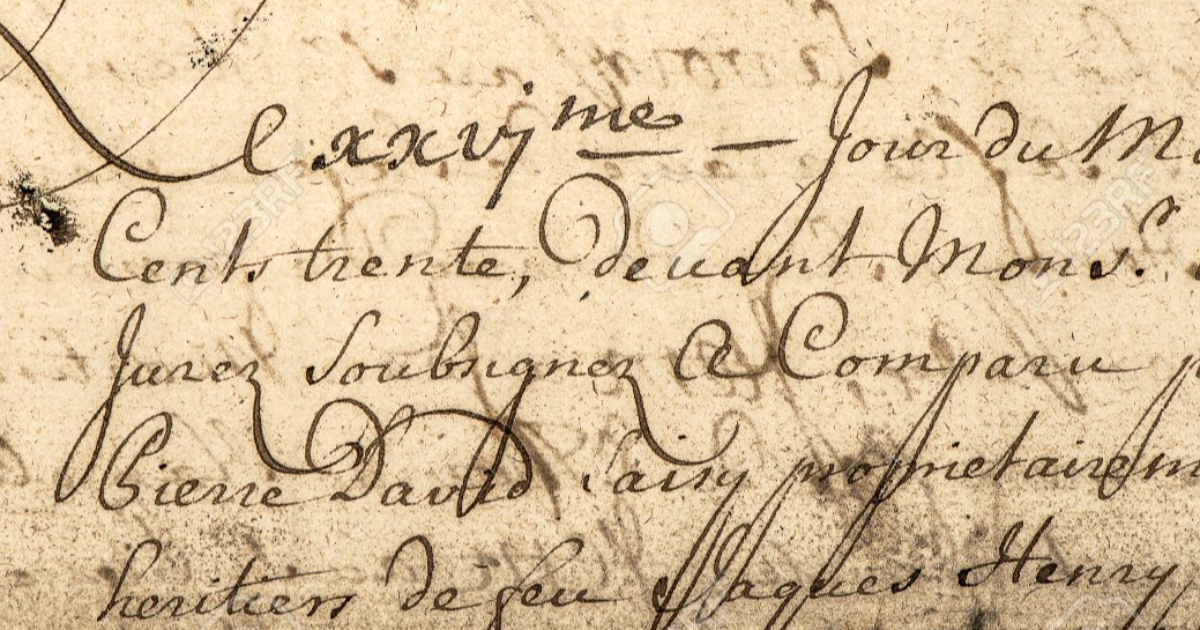 Le xxvj.me — Jour du M
Cents trente, devant Mons.r
Jurez Soubsignez A Comparu
Pierre David Saisy proprietaire
heritiers de feu Jaques Henry